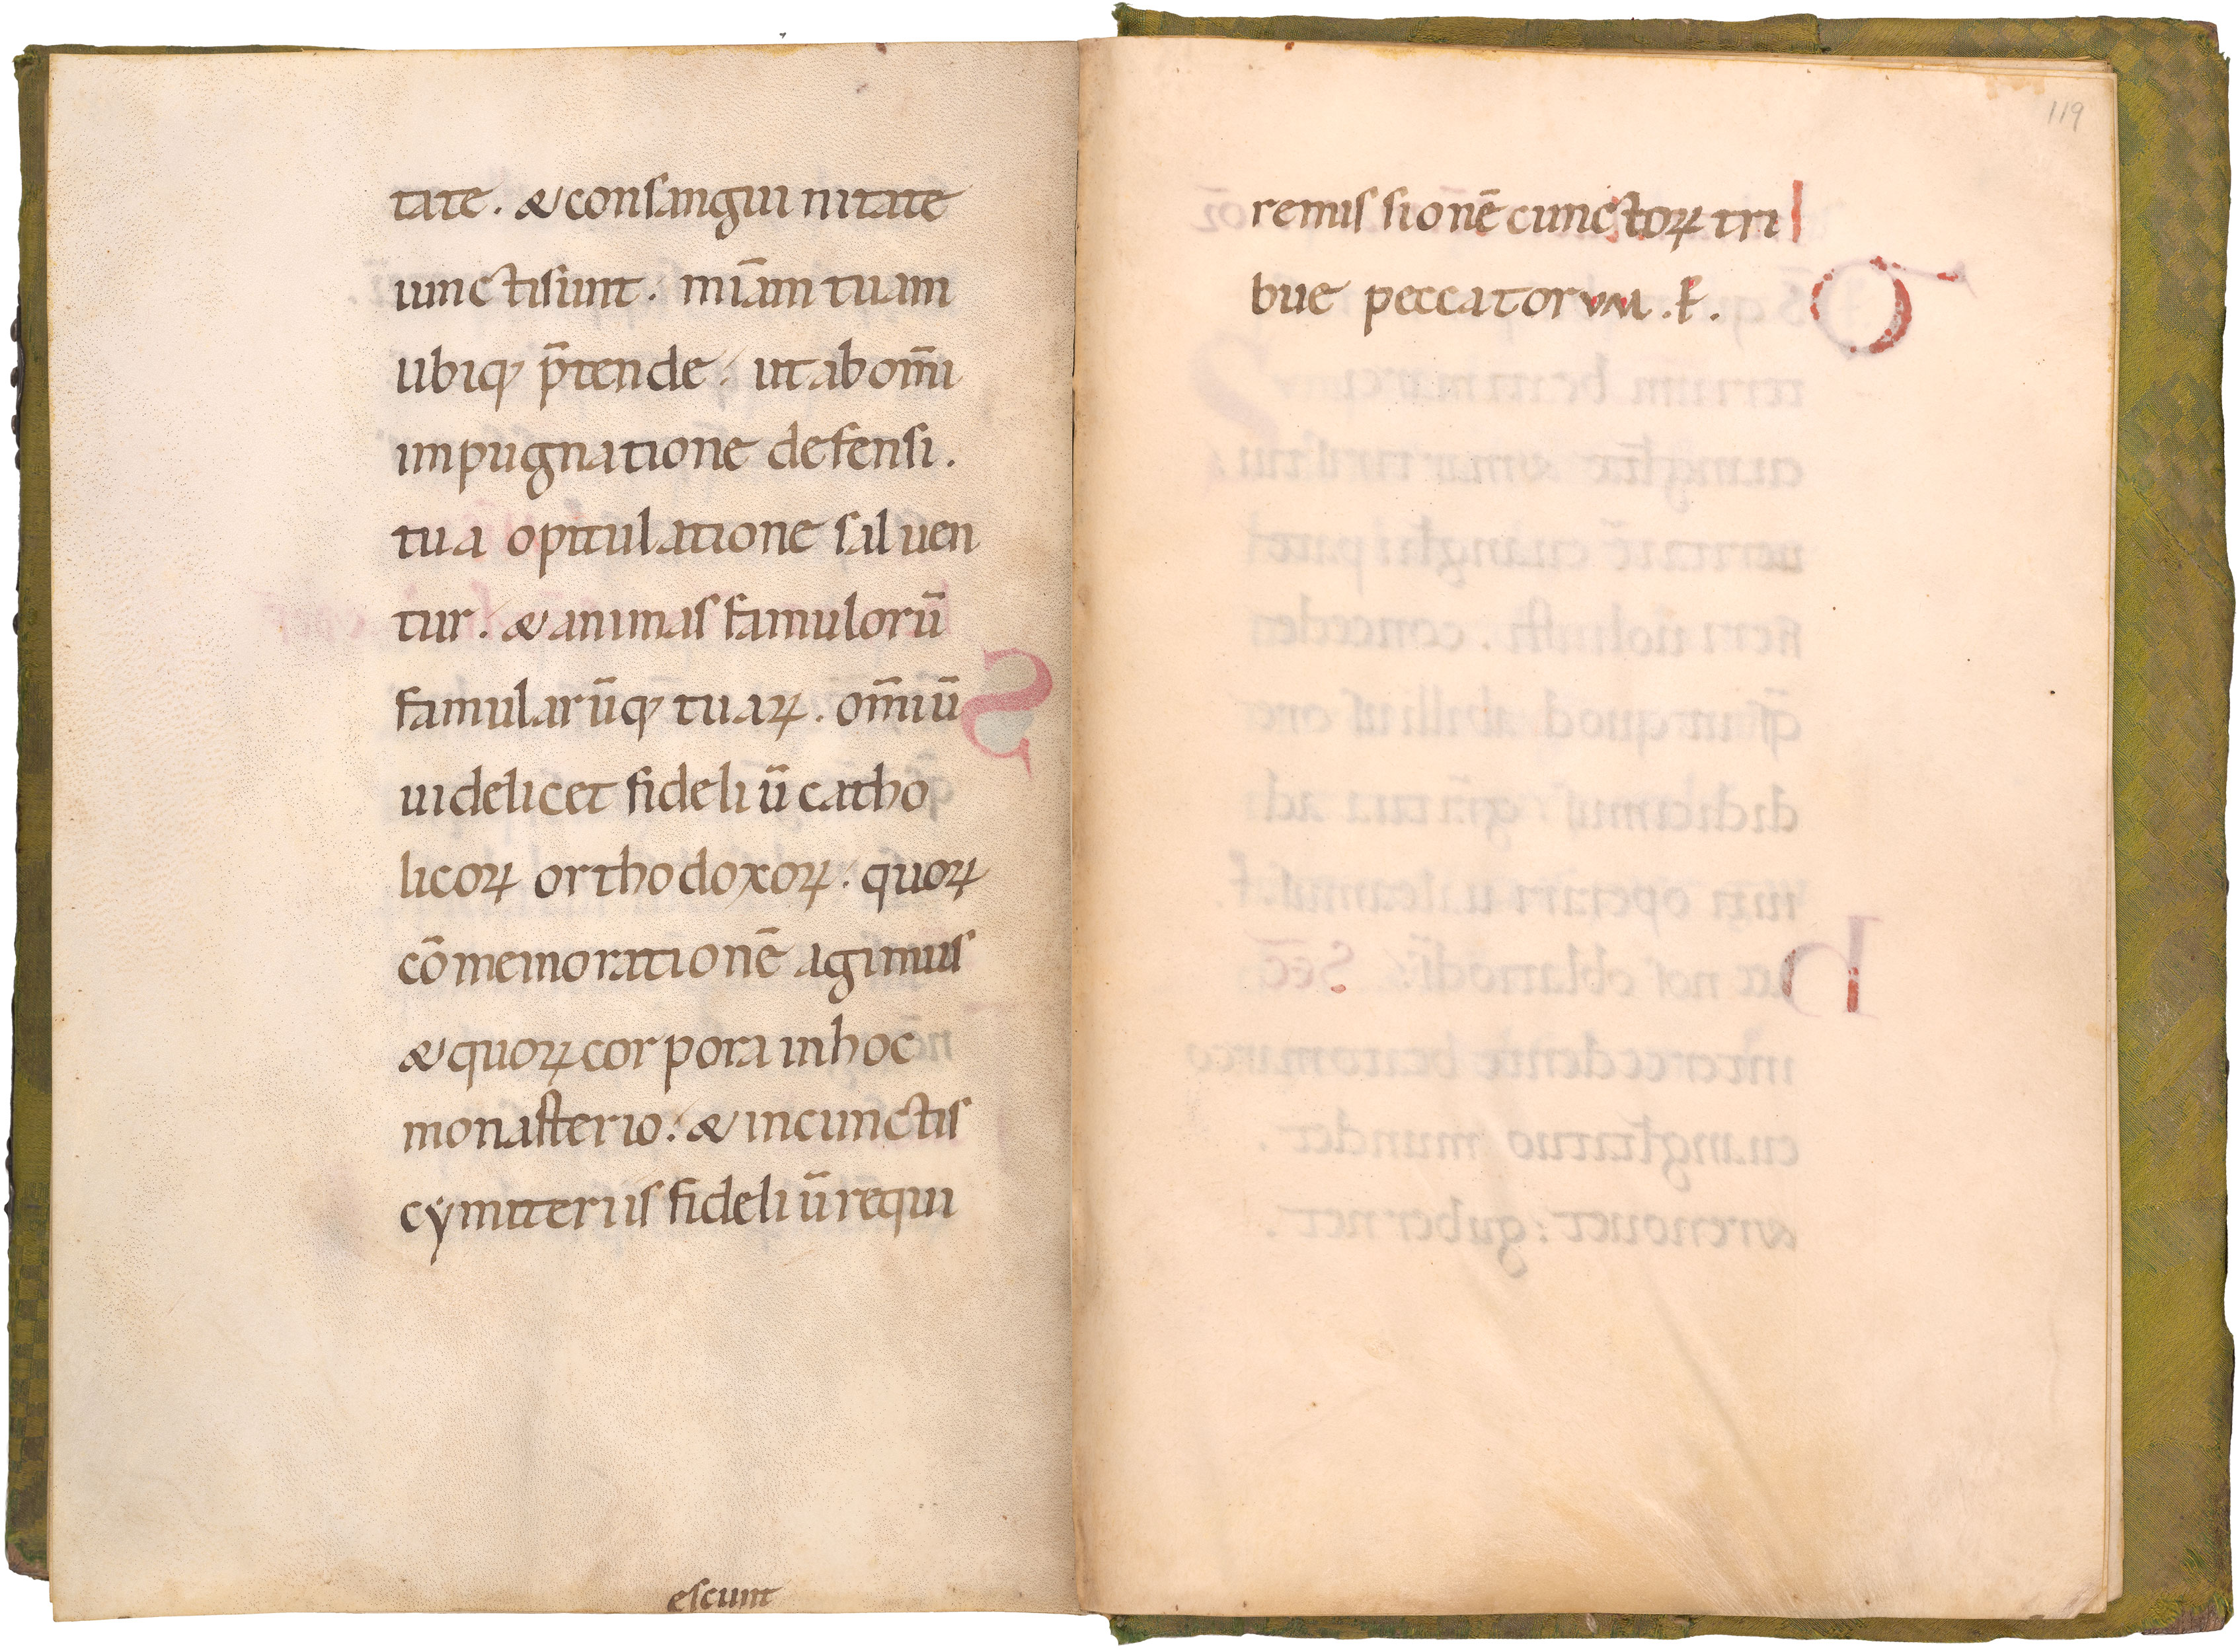 tate. &consanguinitate
iunctisunt. mīam tuam
ubiq; p̄tende. ut abom̄i
impugnatione defensi.
tua opitulatione saluen
tur. &animas famulorū
famularūq; tuaꝝ. om̄iū
uidelicet fideliū catho
licoꝝ orthodoxoꝝ. quoꝝ
cōmemorationē agimus
&quoꝝ corpora inhoc
monasterio. &incunctis
cymiteriis fideliū requi
escunt
119
remissionē cunctoꝝ tri
bue peccatorum. P̄.